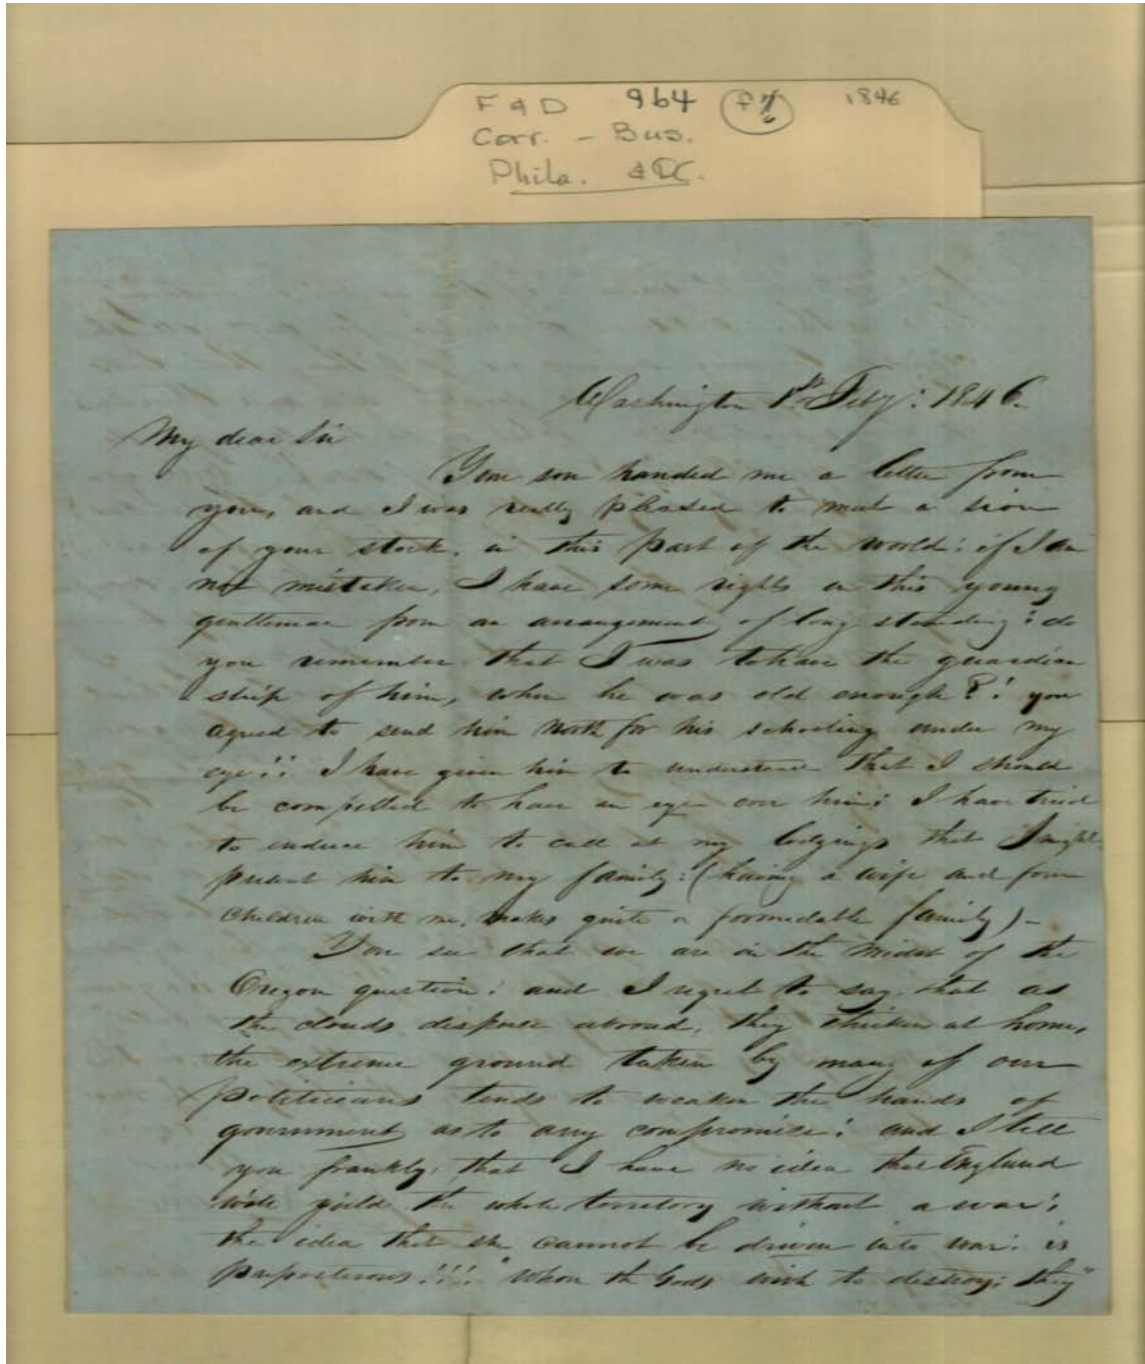 F & D 964 1846
Corr. - Bus.
Phila. & DC.
Washington 1st Feby: 1846.
My dear Sir
Your son handed me a letter from
you, and I was really pleased to meet a sion
of your stock, in this part of the world: if I am
not mistaken, I have some rights in this young
gentleman from an arrangement of long standing: do
you remember that I was to have the guardian
ship of him, when he was old enough?! you
agreed to send him North for his schooling under my
eye!! I have given him to understand that I should
be compelled to have an eye over him: I have tried
to induce him to call at my lodgings that I might
present him to my family: (having a wife and four
children with me, makes quite a formidable family) -
You see that we are in the midst of the
Oregon question: and I regret to say, that as
the clouds disperse abroad, they thicken at home,
the extreme ground taken by many of our
politicians tends to weaken the hands of
government as to any compromise: and I tell
you frankly, that I have no idea that England
will yield the whole territory without a war:
the idea that she cannot be driven into war: is
preposterous!!! "whom the Gods wish to destroy: they"